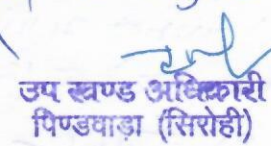 उप खण्ड अधिकारी
पिण्डवाड़ा (सिरोही)